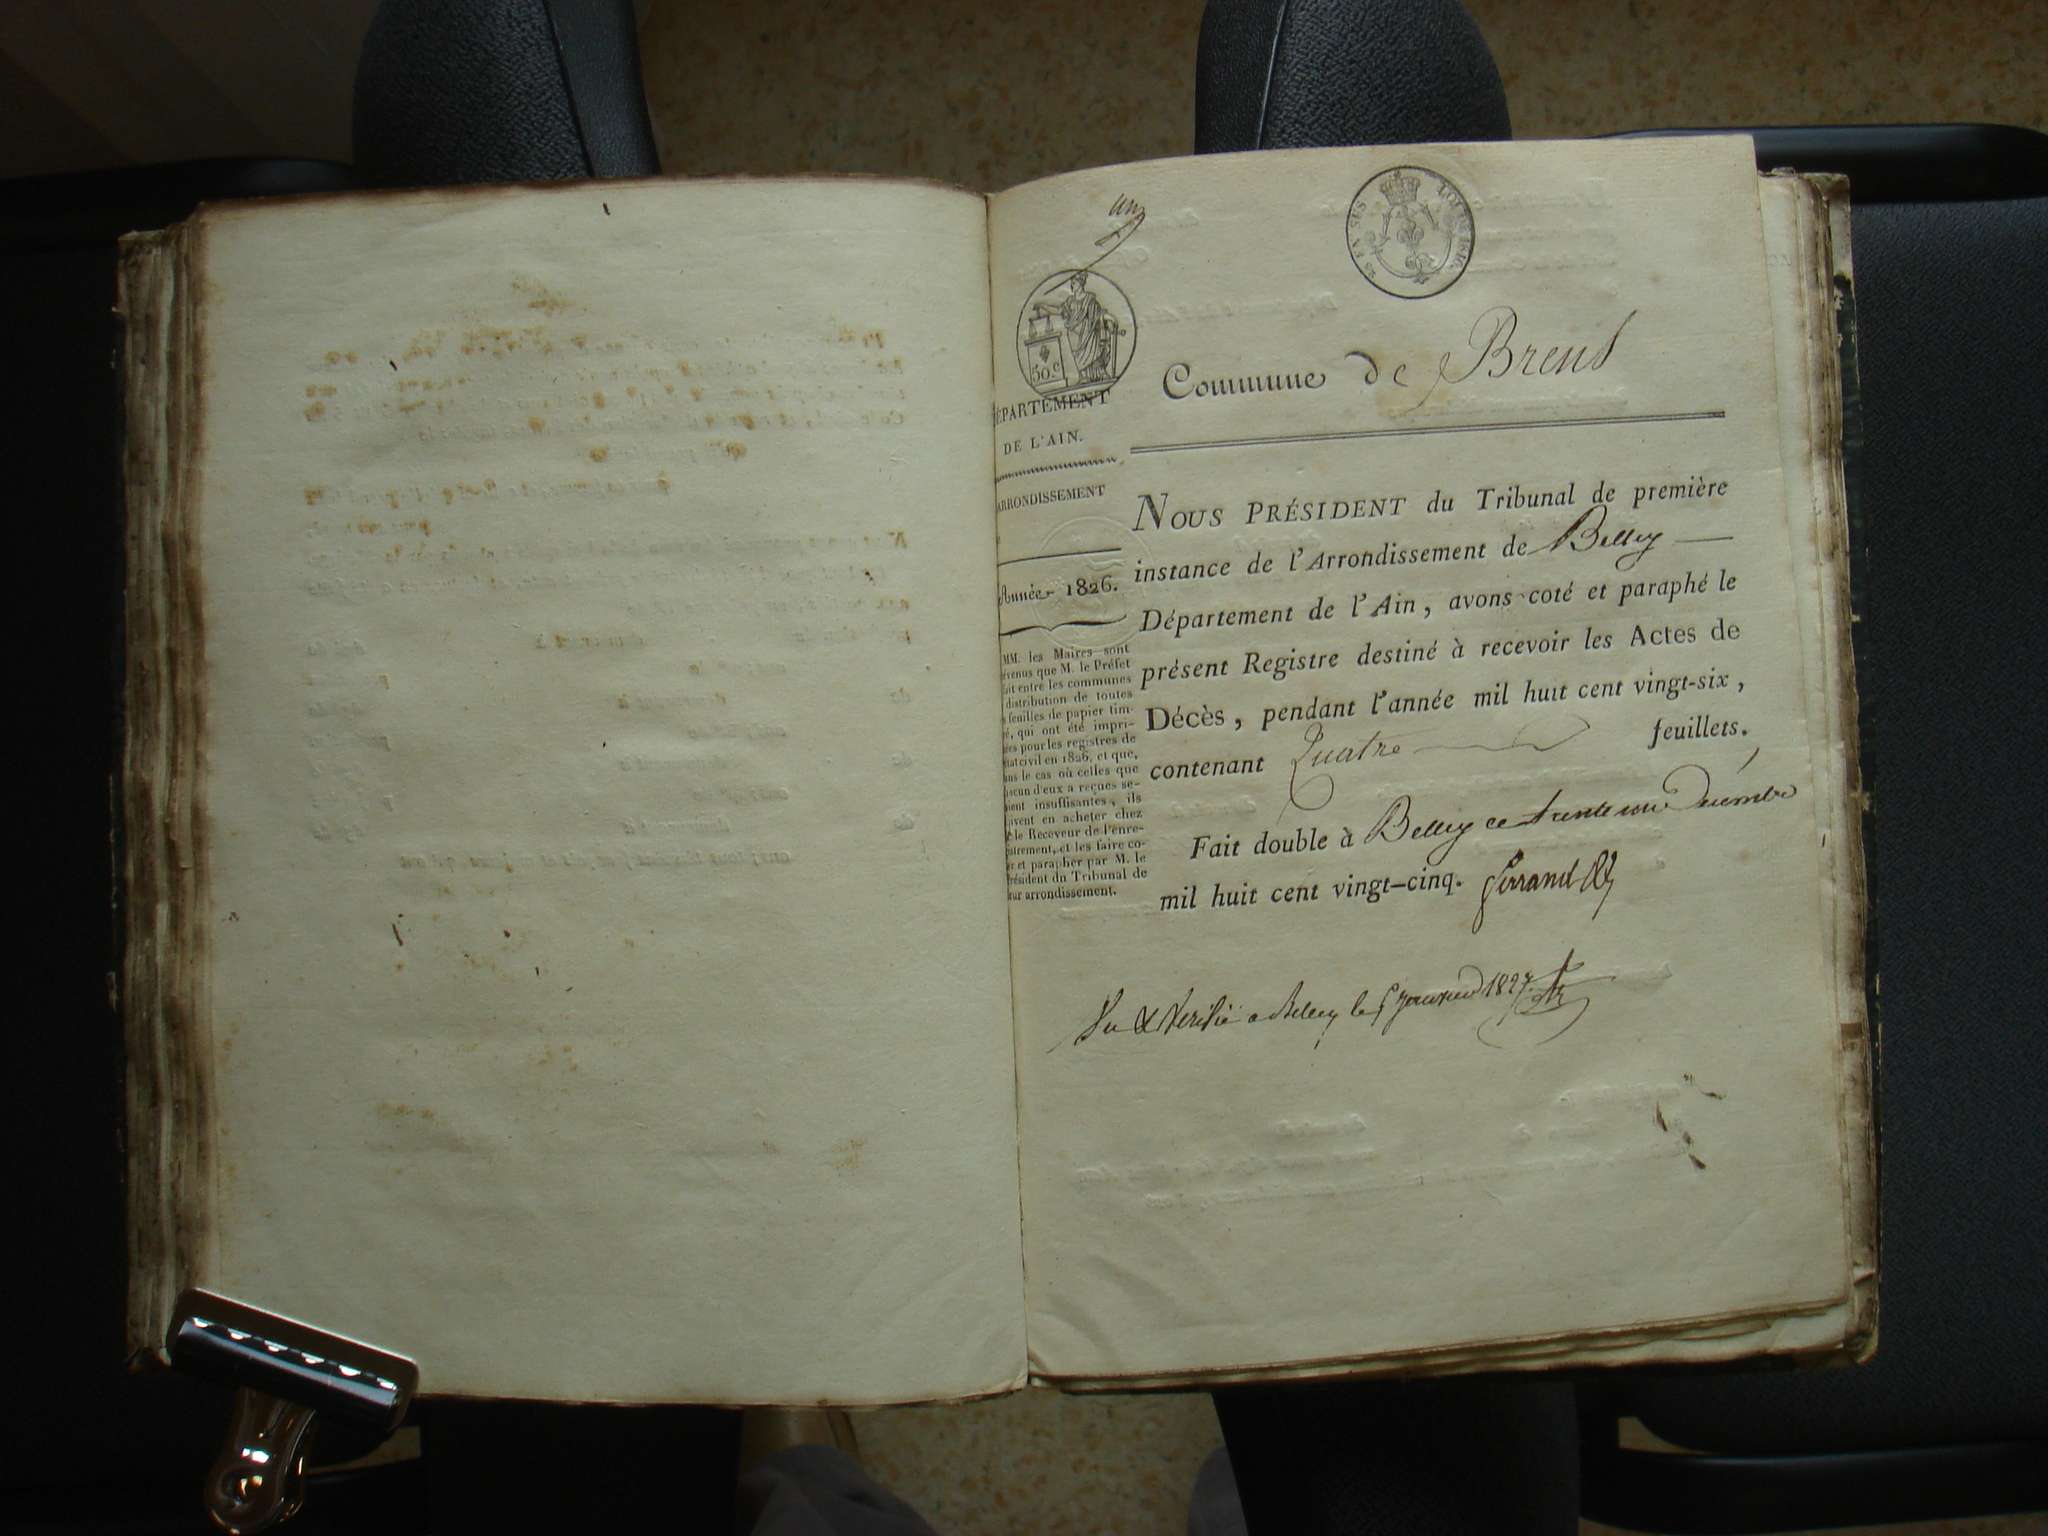 un
LOI DE 1816.
50.c
Commune de Brens
DÉPARTEMENT
DE L'AIN.
ARRONDISSEMENT
Année 1826.
MM. les Maires sont
évenus que M. le Préfet
ait entre les communes
distribution de toutes
s feuilles de papier tim-
é, qui ont été impri-
ées pour les registres de
état civil en 1826, et que,
ans le cas où celles que
acun d'eux a reçues se-
aient insuffisantes, ils
oivent en acheter chez
le Receveur de l'enre-
istrement, et les faire co-
er et parapher par M. le
résident du Tribunal de
eur arrondissement.
NOUS PRÉSIDENT du Tribunal de première
instance de l'Arrondissement de Belley
Département de l'Ain, avons coté et paraphé le
présent Registre destiné à recevoir les Actes de
Décès, pendant l'année mil huit cent vingt-six,
contenant Quatre feuillets.
Fait double à Belley ce trente un Décembre
mil huit cent vingt-cinq. Ferrand
Vu & Verifié a Belley le 5 janvier 1827